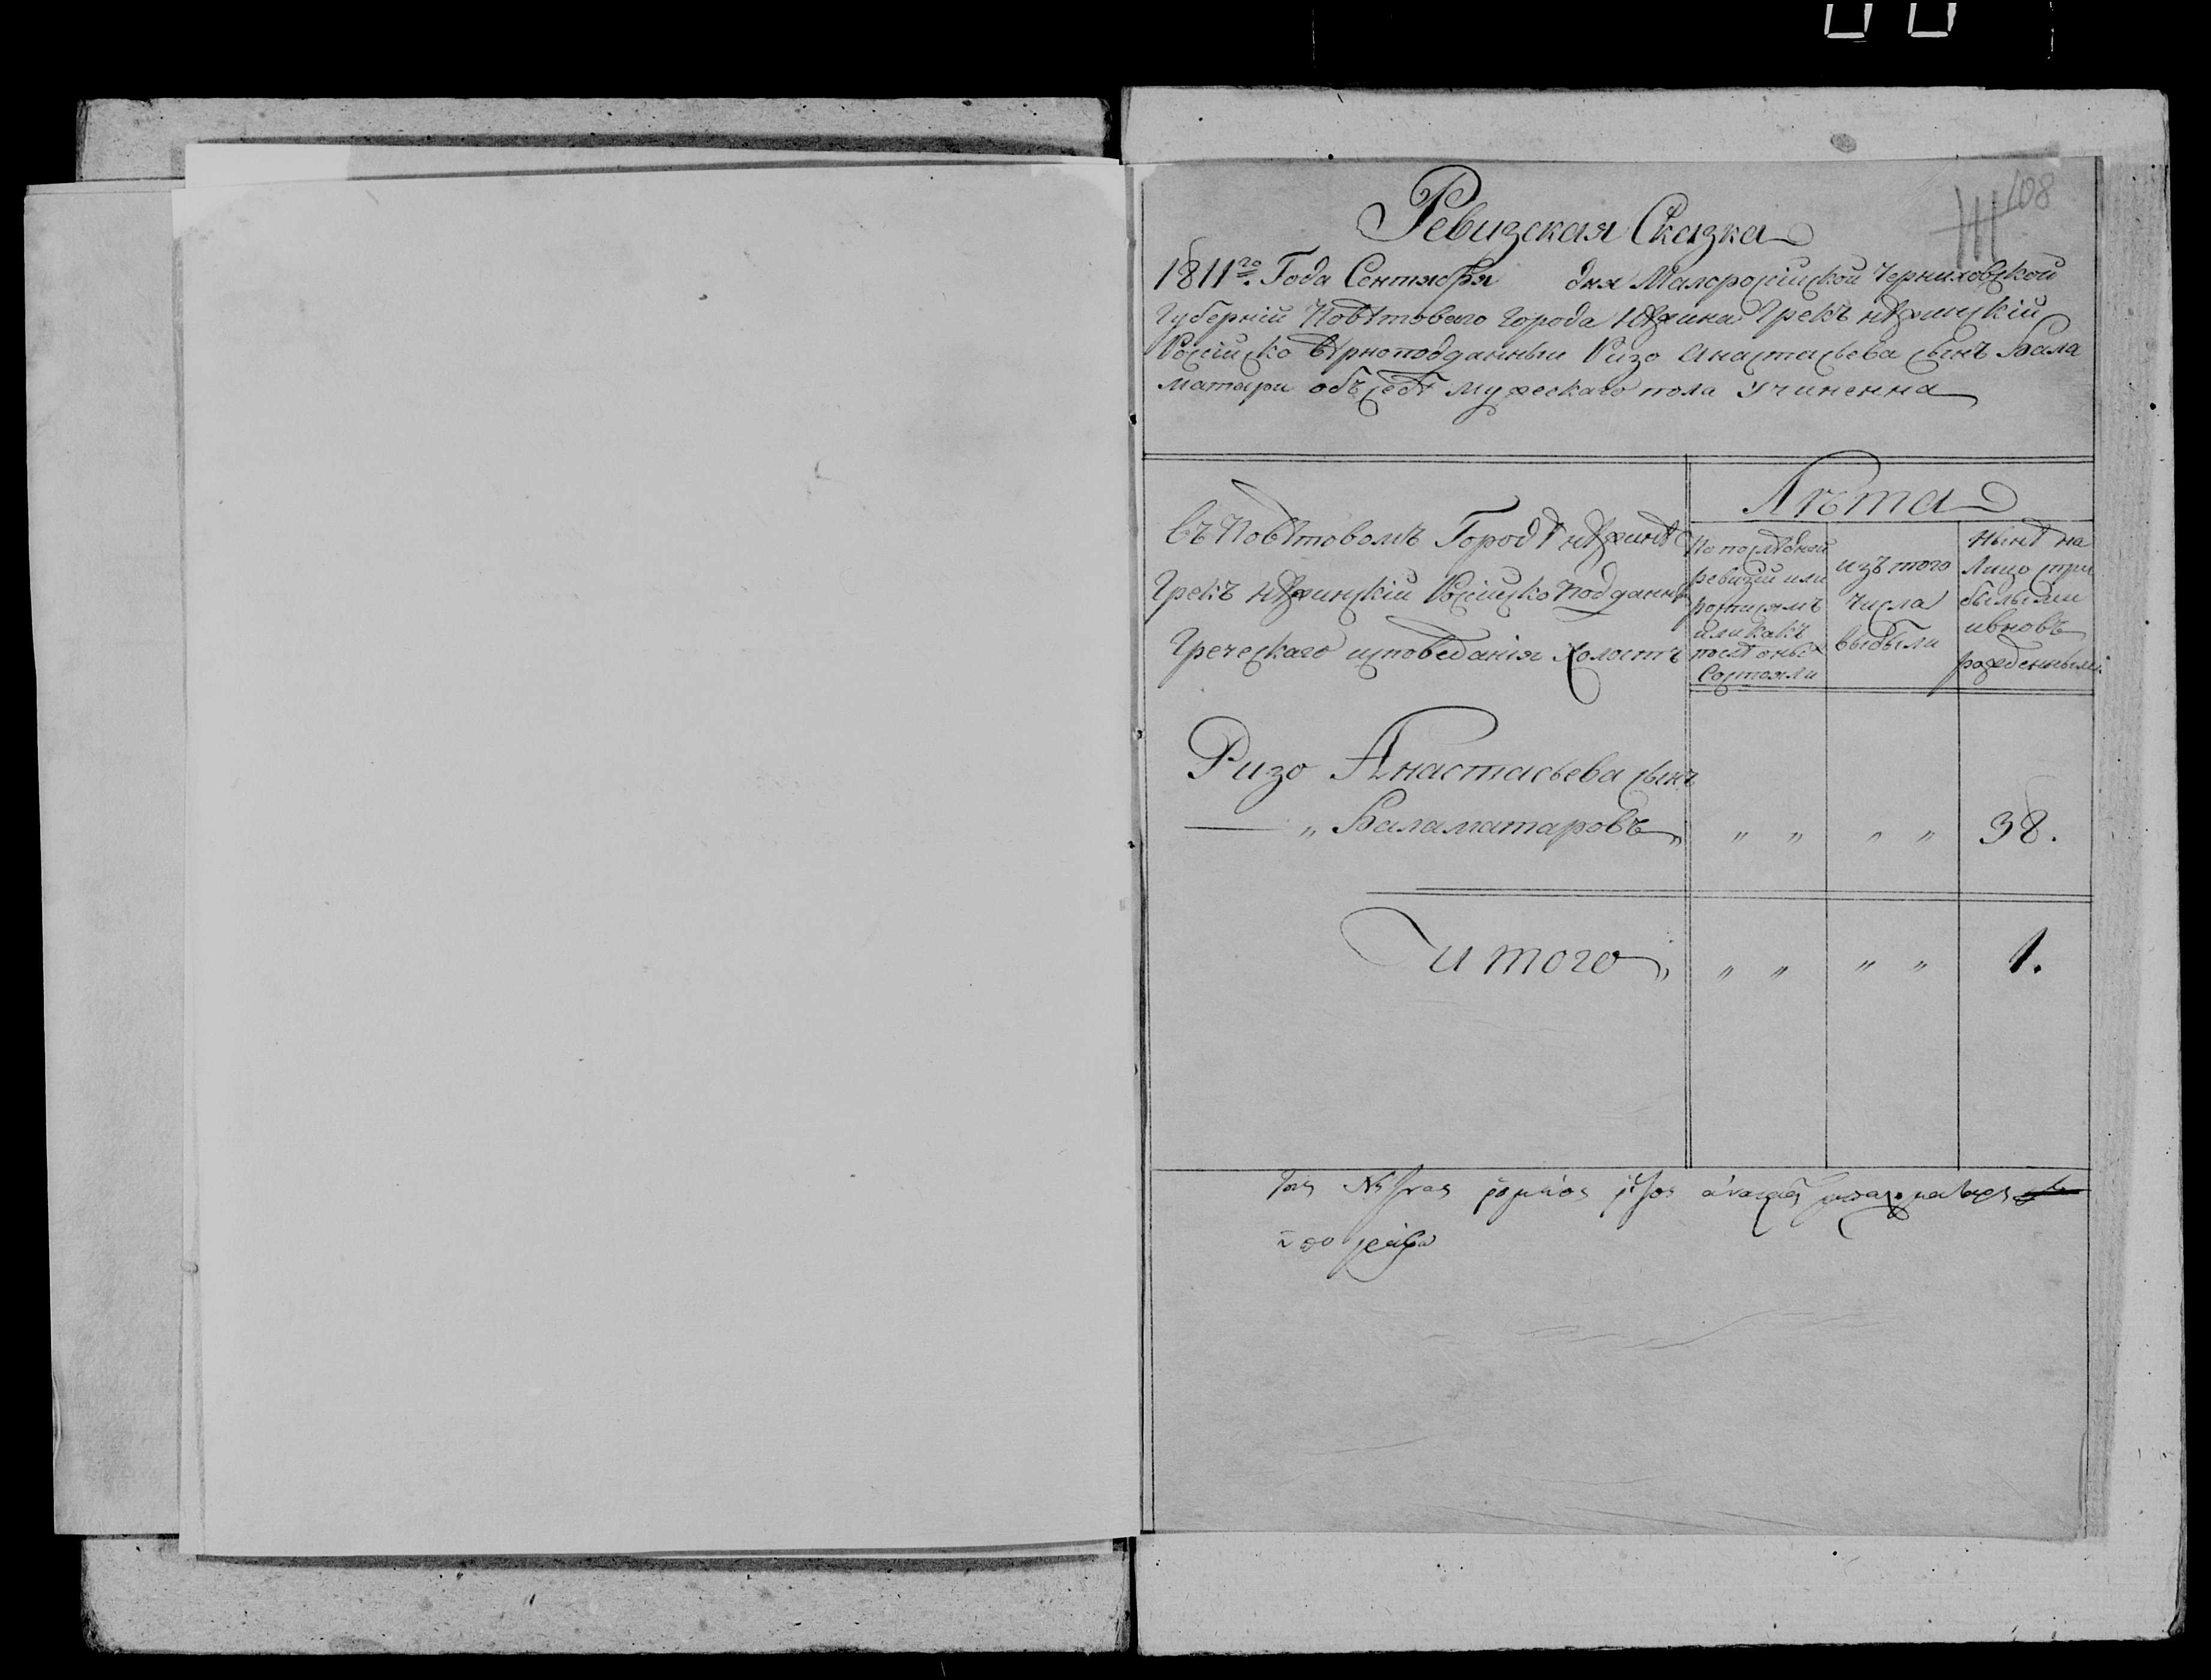 108
Ревизская Сказка
1811го. Года Сентября дня Малоросійской Черниховской
Губерніи Повѣтоваго Города Нѣжина Грекъ нѣжинскій
Російско вѣрноподданный Ризо Анастасьева сынъ Бала
матари объ себѣ мужескаго пола Учиненна
Лѣта
Въ Повѣтовомъ Городѣ нѣжинѣ
Грекъ нѣжинскій Російско подданны
Греческаго исповеданія холостъ
По послѣдной
ревизіи или
росписямъ
или какъ
послѣ оныхъ
Состояли
изъ того
числа
выбыли
нынѣ на
Лицо съ при
былыми
и вновь
рожденными
Ризо Анастасьева сынъ
— „ Баламатаровъ „ „ „ „ „ 38.
и того „ „ „ „ „ 1.
ρομεος ρίζος αναστάση